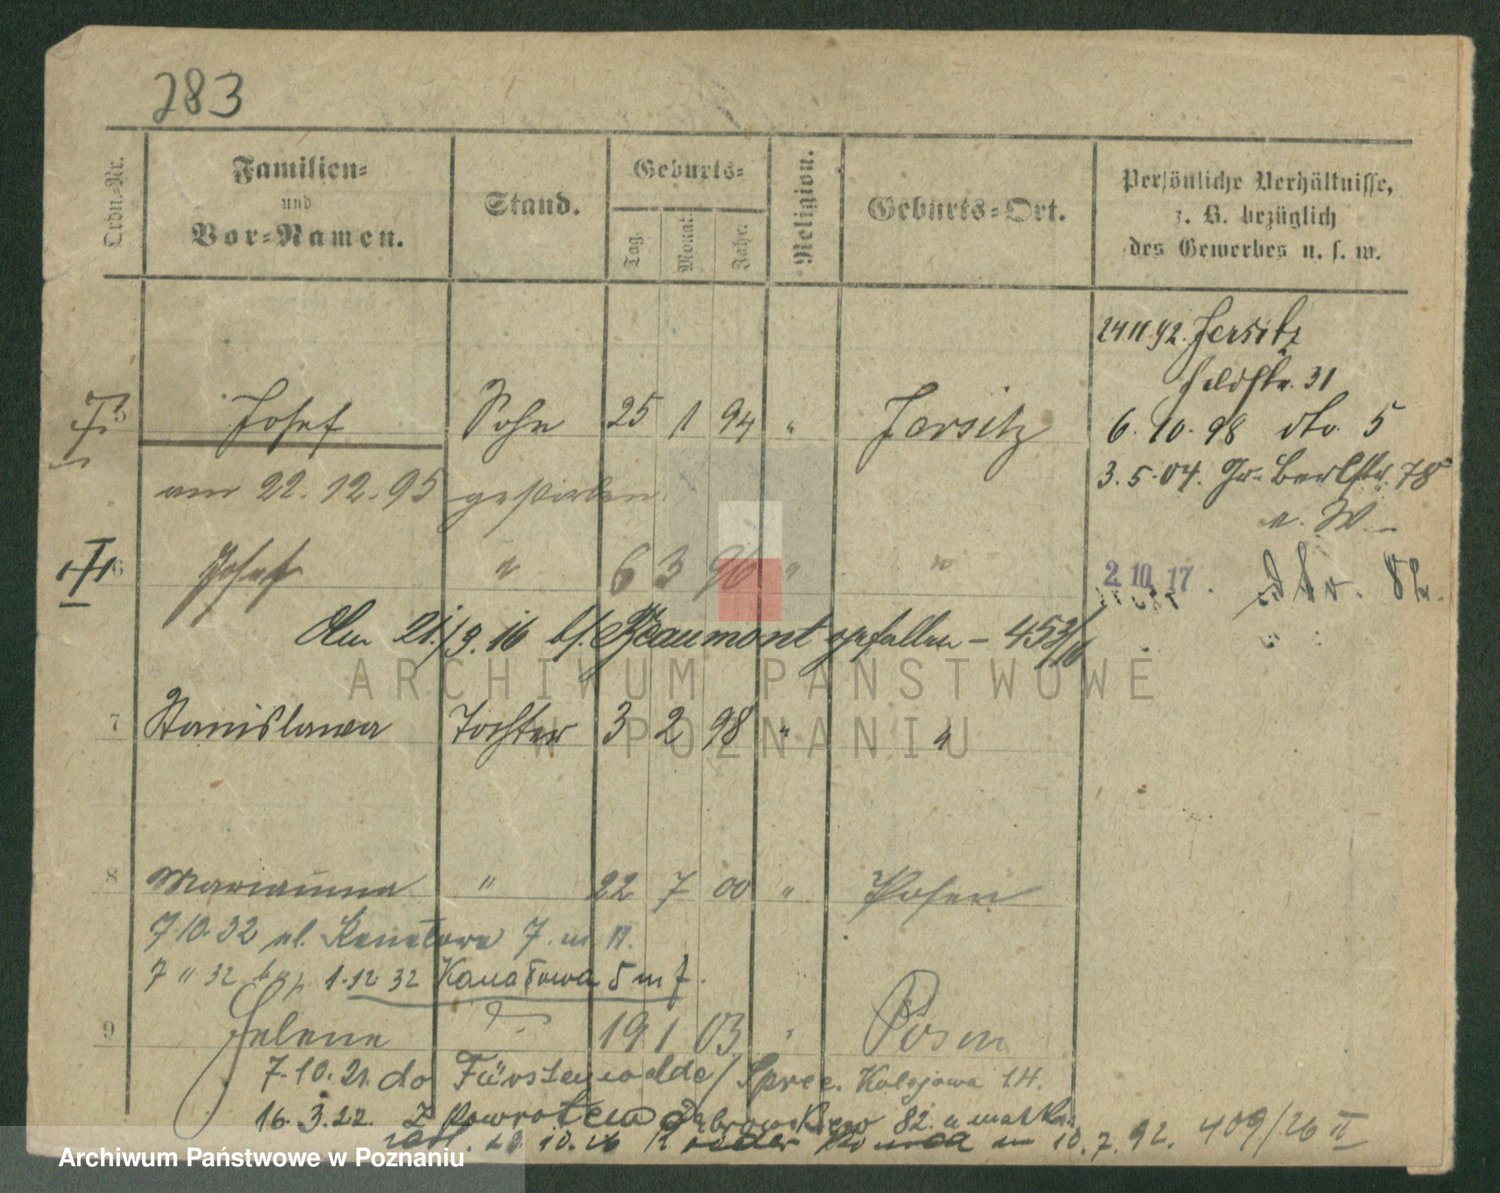 283
Ordn.-Nr.
Familien-
und
Vor-Namen.
Stand.
Geburts-
Tag.
Monat.
Jahr.
Religion.
Geburts-Ort.
Persönliche Verhältnisse,
z. B. bezüglich
des Gewerbes u. s. w.
24.11.92. Jersitz
Feldstr. 31
5 Josef Sohn 25 1 94 " Jersitz
6.10.98 dto. 5
am 22.12.95 gestorben.
3.5.04. Gr. Berlstr. 78
6 Josef " 6 3 96 " "
2. 10. 17. dto. 82.
Am 21./9.16 bf. Beaumont gefallen –
7 Stanislawa Tochter 3 2 98 " "
8 Marianna " 22 7 00 " Posen
7.10.32 ul. Kanałowa 7. m. 11.
7 11 32 1.12 32 Kanałowa 5 m 7.
9 Helene 19 1 03 " Posen
7.10.21. do Fürstenwalde/Spree. Kolejowa 14.
16.3.22. Z powrotem Dąbrowskiego 82. u matki.
10.7.92. 409/26 II
ARCHIWUM PAŃSTWOWE
W POZNANIU
Archiwum Państwowe w Poznaniu